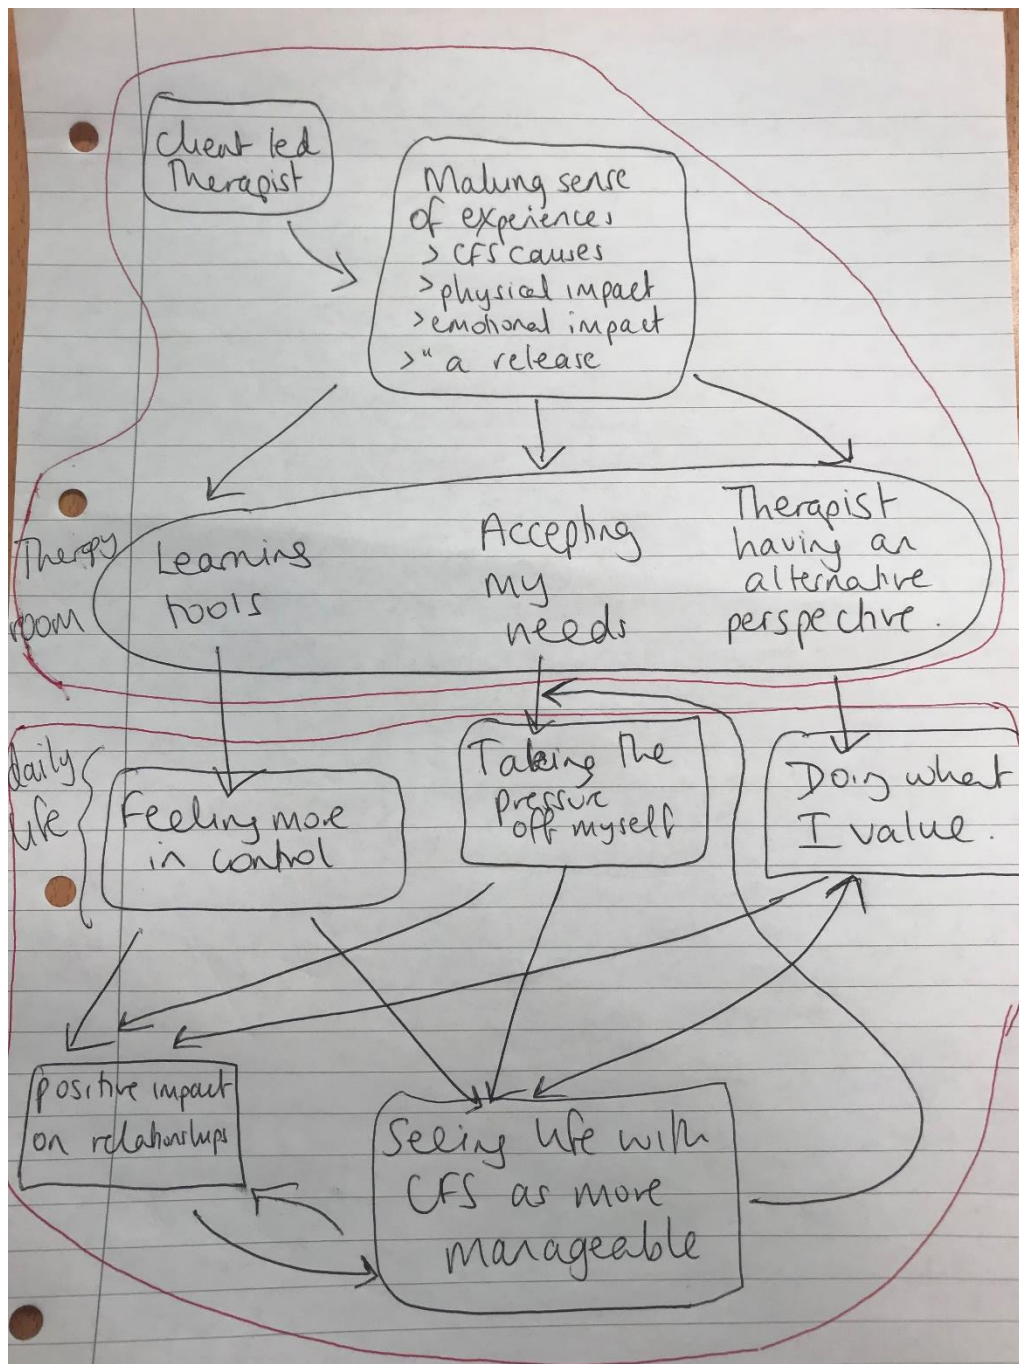 Client led
Therapist
Making sense
of experiences
> CFS causes
> physical impact
> emotional impact
> " a release
Therapy
room
Learning
tools
Accepting
my
needs
Therapist
having an
alternative
perspective.
daily
life
Feeling more
in control
Taking the
pressure
off myself
Doing what
I value.
positive impact
on relationships
Seeing life with
CFS as more
manageable